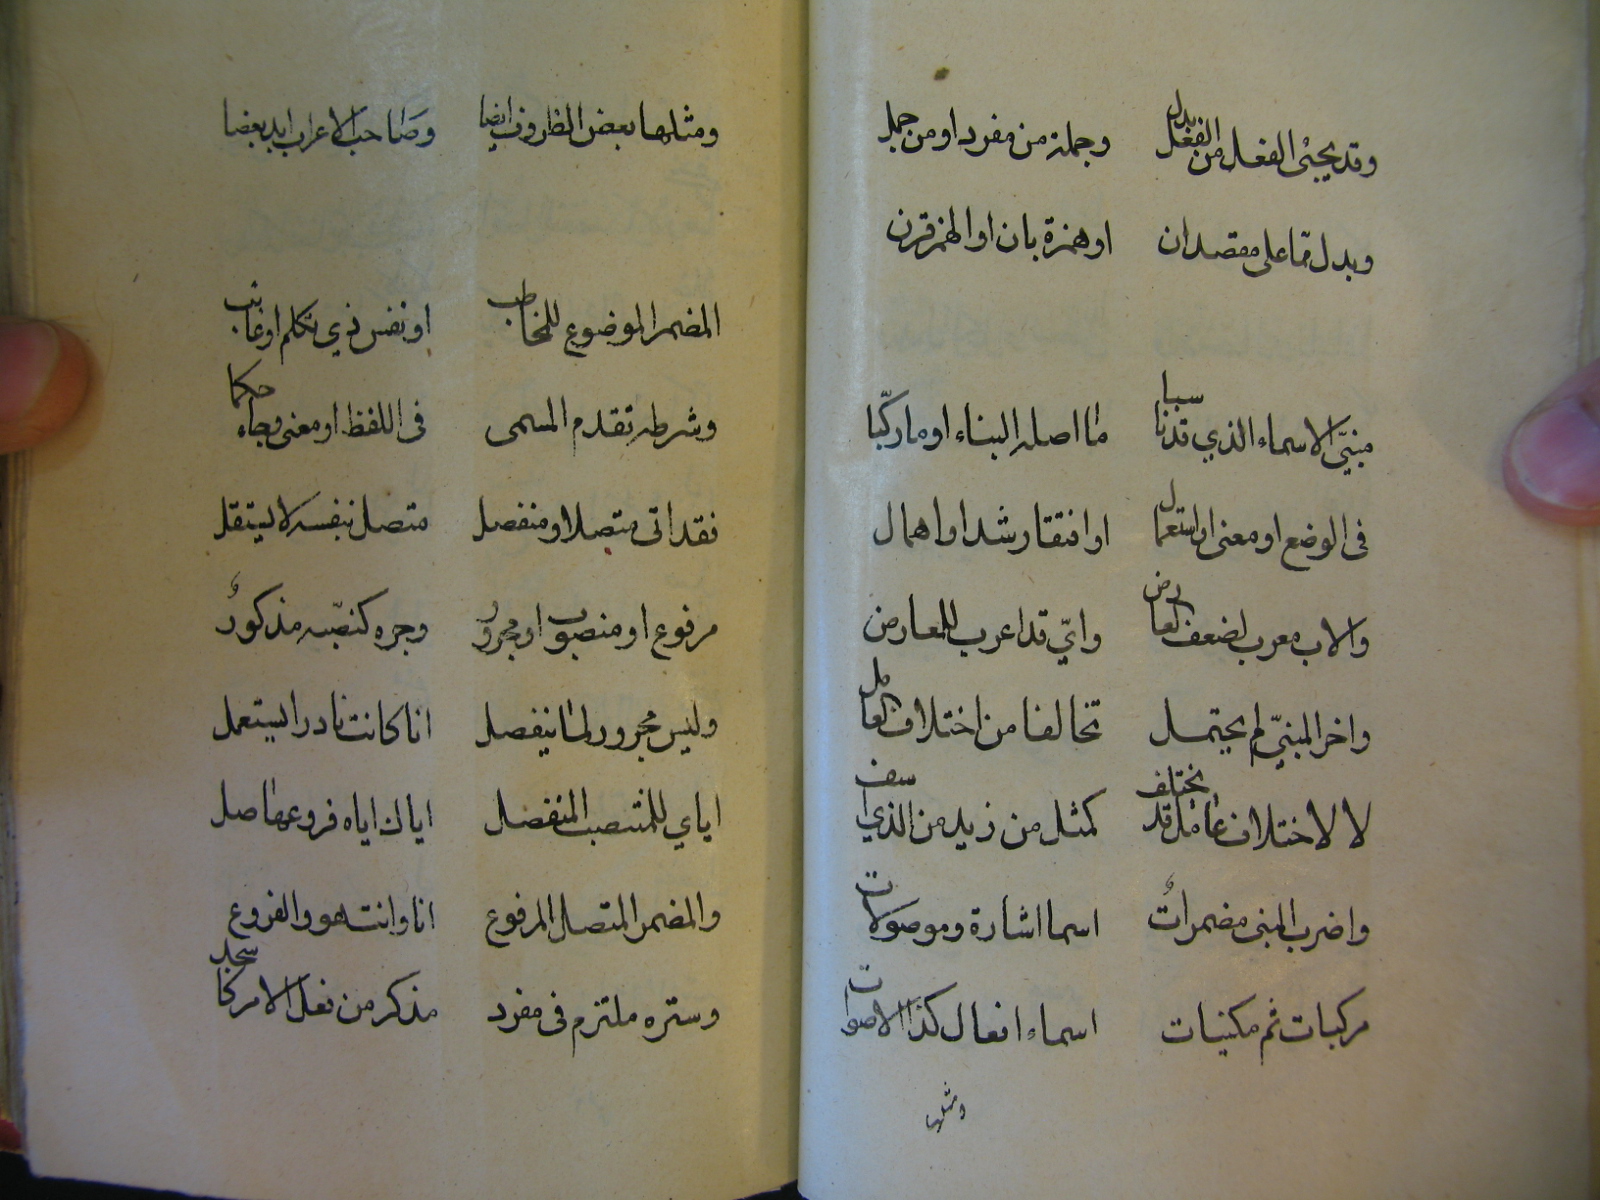 وقد يجئ الفعل من الفعل بدل وجملة من مفرد او من جمل
وبدل ما على مقصدان او همزة بان او الهمز قرن
مبنيّ الاسماء الذي قدنا سبا ما اصله البناء او ما ركّبا
فى الوضع او معنى او استعمال او افتقار شد او اهمال
والاب معرب لضعف العارض وايّ قد اعرب للمعارض
واخر المبنيّ لم يحتمل تخالفا من اختلاف العامل
لا لاختلاف عامل قد يختلف كمثل من زيد من الذي اسف
واضرب المبنى مضمراتٌ اسما اشارة وموصولات
مركبات ثم مكنيات اسماء افعال كذا الاصوات
ومثلها
ومثلها بعض الظروف ايضا وصاحب الاعراب ابد بعضا
المضمر الموضوع للمخاطب او نفس ذي تكلم او غائب
وشرطه تقدم المسمى فى اللفظ او معنى وجاء حكما
فقد اتى متصلا او منفصل متصل بنفسه لا يستقل
مرفوع او منصوب او مجرور وجره كنصبه مذكورٌ
وليس مجرور لما ينفصل انا كانت نادرا يستعمل
اياي للمنتصب المنفصل اياك اياه فروعها صل
والمضمر المتصل المرفوع انا وانت هو والفروع
وستره ملتزم فى مفرد مذكر من فعل الامر كاسجد